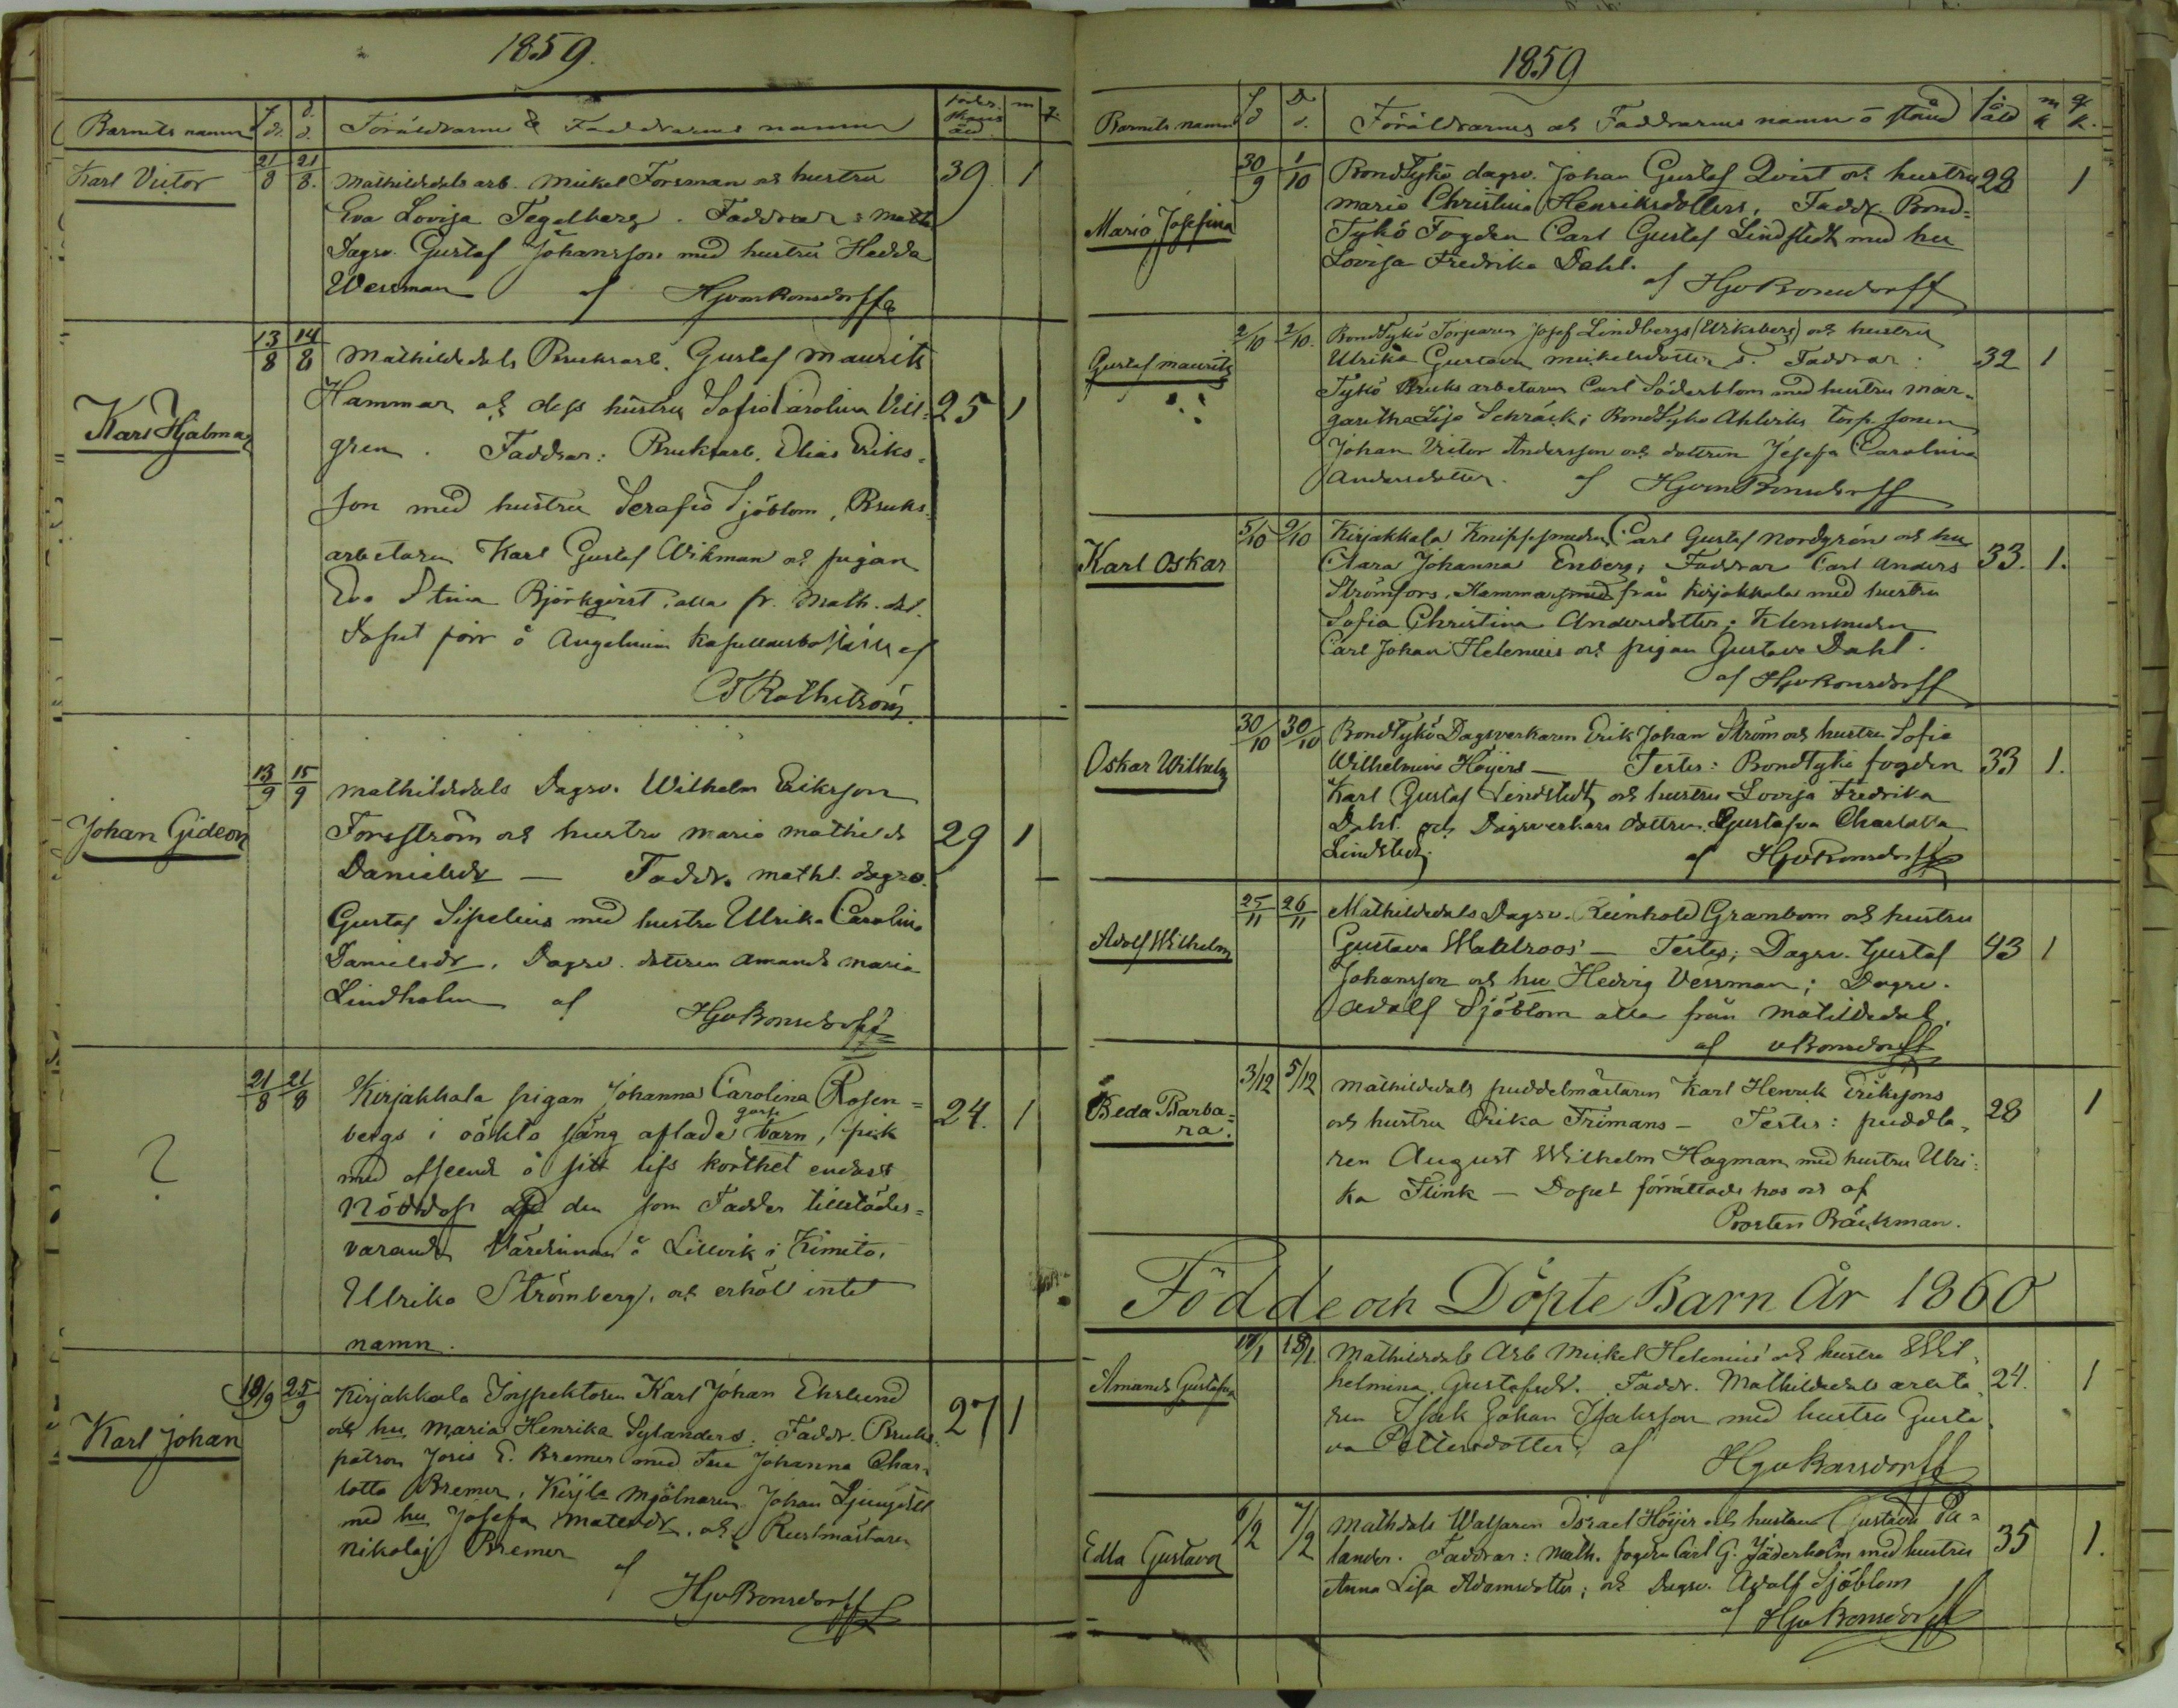 1859.
Barnets namn f. d. d. d. Föräldrarnes & Faddrarnes namn m
Karl Victor 21/8 21/8. Mathildedals arb. Mickel Forsman och hustru 39. 1
Eva Lovisa Tegelberg. Faddrar: Math.
Dagsv. Gustaf Johansson med hustru Hedda
Wessman af HJvonBonsdorff
13/8 14/8 Mathildedals Bruksarb. Gustaf Maurits
Karl Hjalmar Hammar och dess hustru Sofia Carolina Vill- 25 1
gren. Faddrar: Bruksarb. Elias Eriks-
son med hustru Serafia Sjöblom, Bruks-
arbetaren Karl Gustaf Wikman och pigan
Eva Stina Björkqvist, alla fr. Math.dal.
Dopet förr å Angelniemi af
Rothström
13/9 15/9 Mathildedals Dagsv. Wilhelm Eriksson
Johan Gideon Forsström och hustru Maria Mathilda 29 1
Danielsdr — Faddr. Mathl. dagsv.
Gustaf Sipelius med hustru Ulrika Carolina
Danielsdr, Dagsv. dottren Amanda Maria
Lindholm af HJvBonsdorff
21/8 21/8 Kirjakkala pigan Johanna Carolina Rosen-
? bergs i oäkta säng aflade goss barn, fick 24. 1
med afseende å sitt lifs korthet endast
Nöddop af den som Fadder tillstädes-
varande Värdinnan å Lillvik i Kimito,
Ulrika Strömberg, och erhöll intet
namn.
19/9 25/9 Kirjakkala Inspektoren Karl Johan Ekelund
Karl Johan och hu Maria Henrika Sylanders. Faddr. Bruks- 27 1
patron Joris E. Bremer med Fru Johanna Char-
lotta Bremer, Kirjla Mjölnaren Johan Ljungdell
med hu Josefa Matsdr, och Rustmästaren
Nikolaj Bremer
af HJvBonsdorff
1859
Barnets namn f d D d. Föräldrarnes och Faddrarnes namn o stånd m k q k.
30/9 1/10 BondTykö dagsv. Johan Gustaf Qvist och hustru 28 1
Maria Josefina Maria Christina Henriksdotters, Faddr. Bond-
Tykö Fogden Carl Gustaf Lindstedt med hu
Lovisa Fredrika Dahl.
af HJvBonsdorff
2/10 2/10. BondTykö Torparen Josef Lindbergs (Wiksberg) och hustru
Gustaf Maurits Ulrika Gustava Mickelsdotter s. Faddrar: 32 1
Tykö Bruks arbetaren Carl Söderblom med hustru Mar-
garitha Lisa Schräck; BondTykö Ahlviks torp. sonen
Johan Victor Andersson och dottren Josefa Carolina
Andersdotter. af HJvonBonsdorff
5/10 9/10 Kirjakkala Knippsmeden Carl Gustaf Nordgrén och hu
Karl Oskar Clara Johanna Enberg; Faddrar Carl Anders 33. 1.
Strömfors, Hammarsmed från Kirjakkala med hustru
Sofia Christina Andersdotter; Klensmeden
Carl Johan Helenius och pigan Gustava Dahl.
af HJvBonsdorff
30/10 30/10 BondTykö Dagsverkaren Erik Johan Ström och hustru Sofia
Oskar Wilhelm Wilhelmina Höijers — Testes: BondTykö fogden 33 1.
Karl Gustaf Lindstedt och hustru Lovisa Fredrika
Dahl. och Dagsverkare dottren Gustafva Charlotta
Lindstedt. af HJvBonsdorff
25/11 26/11 Mathildedals Dagsv. Reinhold Granbom och hustru
Adolf Wilhelm Gustava Wahlroos — Testes; Dagsv. Gustaf 43 1
Johansson och hu Hedvig Vessman; Dagsv.
Adolf Sjöblom alla från Matildedal.
af vBonsdorff
3/12 5/12 Mathildedals puddelmästaren Karl Henrik Erikssons
Beda Barba- och hustru Erika Frimans — Testes: puddla- 28 1
ra. ren August Wilhelm Hagman med hustru Ulri-
ka Flink — Dopet förrättades hos och af
Prosten Bäckman.
Födde och Döpte Barn År 1860
18/1 Mathildedals Arb Mickel Helenius och hustru Wil-
Amanda Gustafva helmina Gustafsdr. Faddr. Mathildedals arbeta- 24. 1
ren Isak Johan Isaksson med hustru Gusta-
va Pettersdotter, af HJvBonsdorff
6/2 7/2 Mathdals Walsaren Israel Höijer och hustru Gustava Pa-
Edla Gustava lander. Faddrar: Math. fogden Carl G. Jäderholm med hustru 35 1.
Anna Lisa Adamsdotter; och Dagsv. Adolf Sjöblom
af HJvBonsdorff